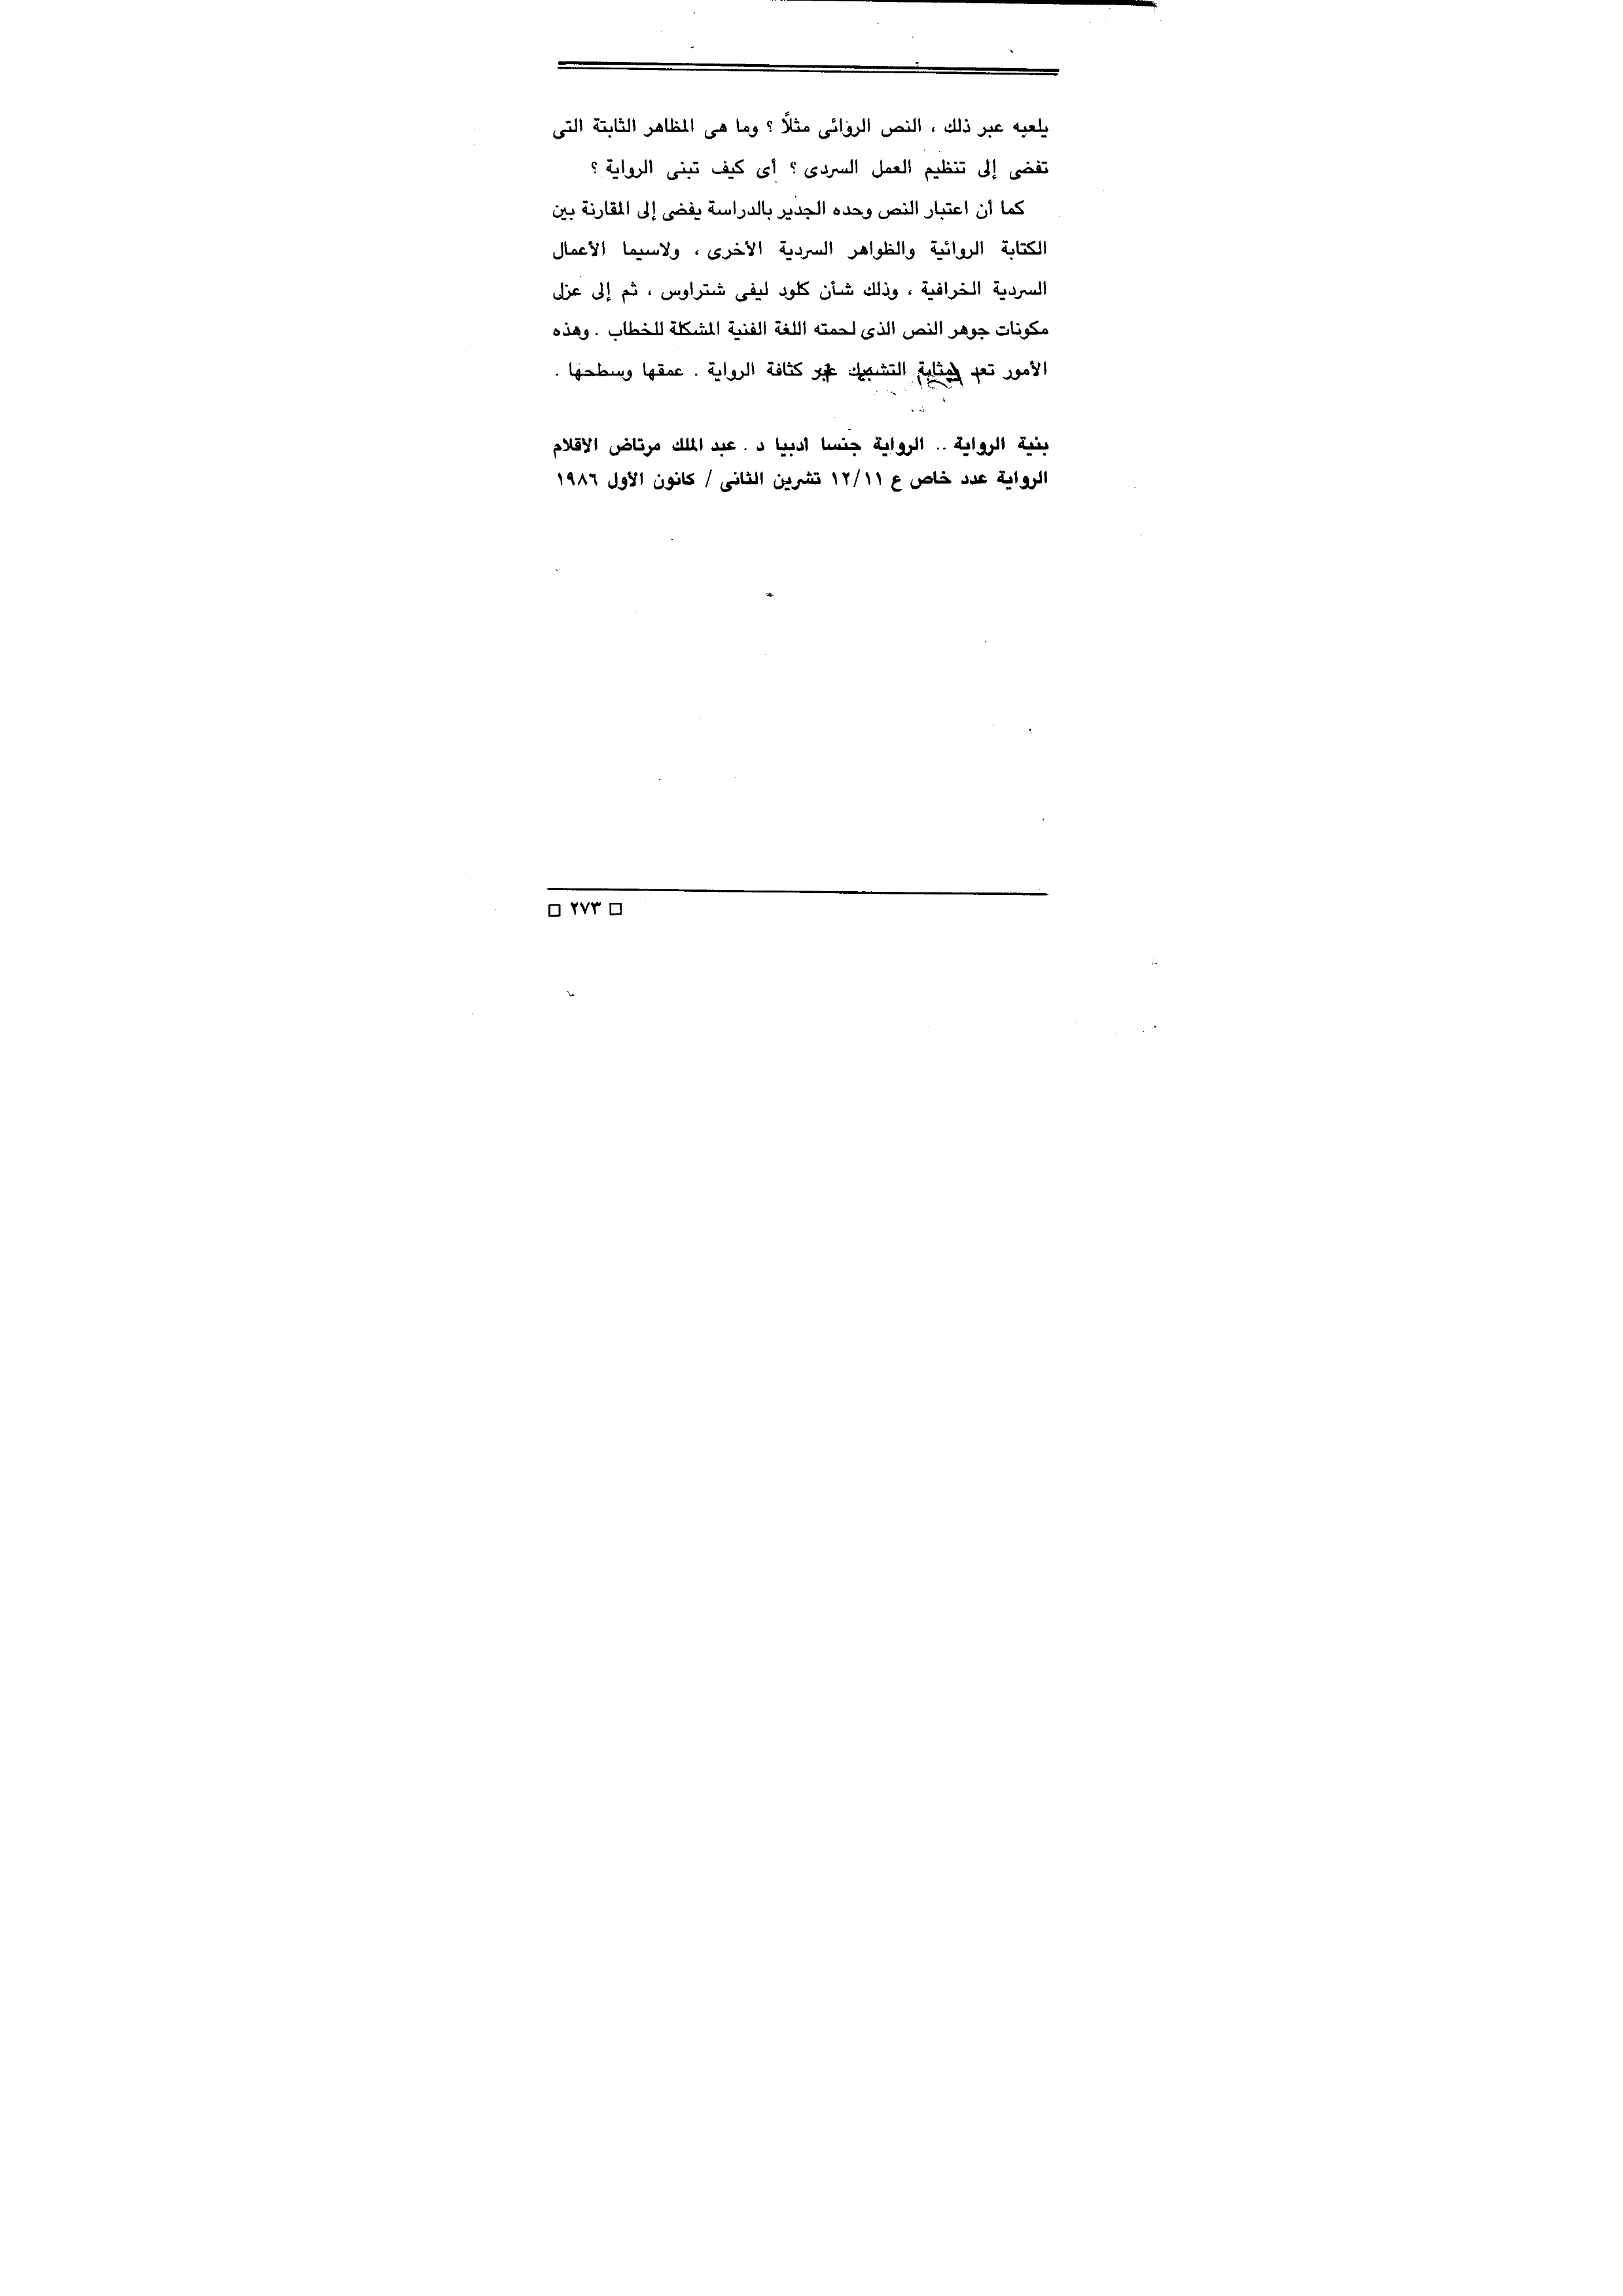 يلعبه عبر ذلك ، النص الروائى مثلاً ؟ وما هى المظاهر الثابتة التى
تفضى إلى تنظيم العمل السردى ؟ أى كيف تبنى الرواية ؟
كما أن اعتبار النص وحده الجدير بالدراسة يفضى إلى المقارنة بين
الكتابة الروائية والظواهر السردية الأخرى ، ولاسيما الأعمال
السردية الخرافية ، وذلك شأن كلود ليفى شتراوس ، ثم إلى عزل
مكونات جوهر النص الذى لحمته اللغة الفنية المشكلة للخطاب . وهذه
الأمور تعد بمثابة عبر كثافة الرواية . عمقها وسطحها .
بنية الرواية .. الرواية جنسا ادبيا د . عبد الملك مرتاض الاقلام
الرواية عدد خاص ع ١٢/١١ تشرين الثانى / كانون الأول ١٩٨٦
□ ٢٧٣ □